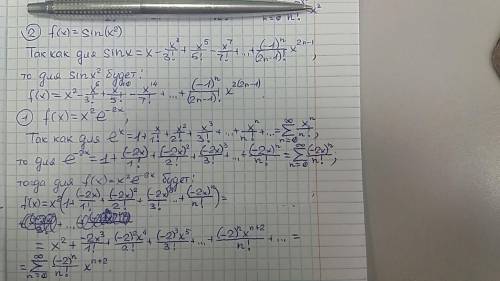 n=0 n! x²
② f(x) = sin(x²)
Так как для sin x = x - x³/3! + x⁵/5! - x⁷/7! + ... + (-1)ⁿ/(2n-1)! x²ⁿ⁻¹,
то для sin x² будет:
f(x) = x² - x⁶/3! + x¹⁰/5! - x¹⁴/7! + ... + (-1)ⁿ/(2n-1)! x²⁽²ⁿ⁻¹⁾
① f(x) = x² e⁻²ˣ,
Так как для eˣ = 1 + x/1 + x²/2! + x³/3! + ... + xⁿ/n! + ... = ∑ₙ₌₀^∞ xⁿ/n!,
то для e⁻²ˣ = 1 + (-2x)/1! + (-2x)²/2! + (-2x)³/3! + ... + (-2x)ⁿ/n! = ∑ₙ₌₀^∞ (-2x)ⁿ/n!,
тогда для f(x) = x² e⁻²ˣ будет:
f(x) = x²(1 + (-2x)/1! + (-2x)²/2! + (-2x)³/3! ... + (-2x)ⁿ/n!) =
= x² + -2x³/1! + (-2)²x⁴/2! + (-2)³x⁵/3! + ... + (-2)ⁿ xⁿ⁺²/n! + ... =
= ∑ₙ₌₀^∞ (-2)ⁿ/n! xⁿ⁺².